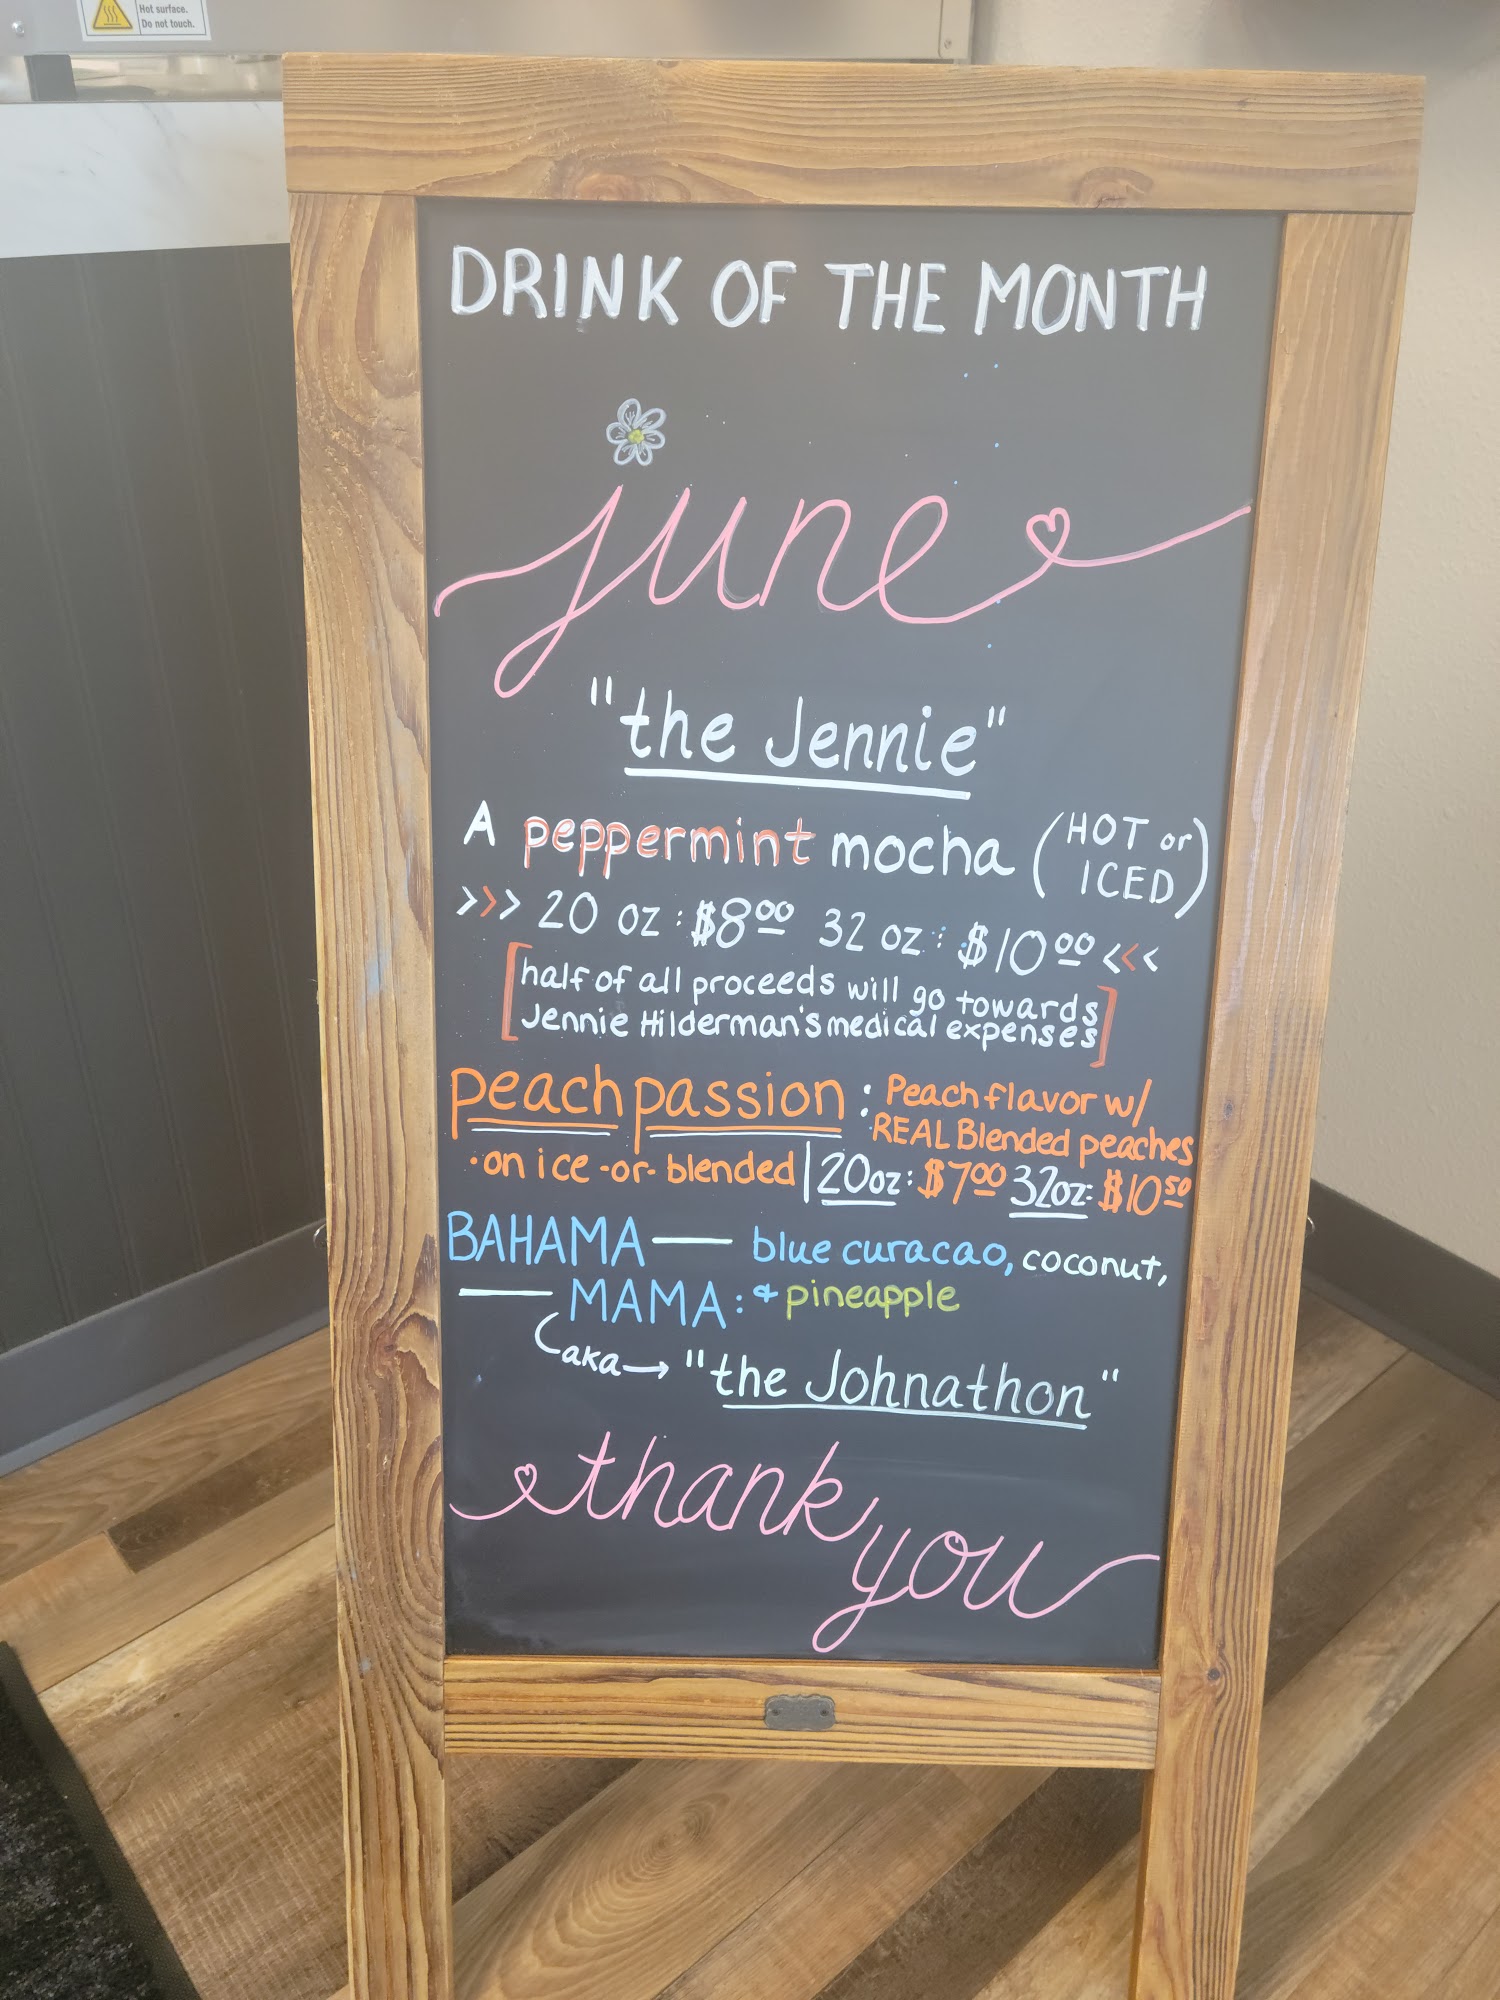 Hot surface.
Do not touch.
DRINK OF THE MONTH
june
"the Jennie"
A peppermint mocha (HOT or ICED)
>>> 20 oz : $8.00 32 oz : $10.00 <<<
[half of all proceeds will go towards
Jennie Hilderman's medical expenses]
peach passion : Peach flavor w/
REAL Blended peaches
• on ice -or- blended | 20oz: $7.00 32oz: $10.50
BAHAMA — blue curacao, coconut,
— MAMA: & pineapple
aka → "the Johnathon"
thank you